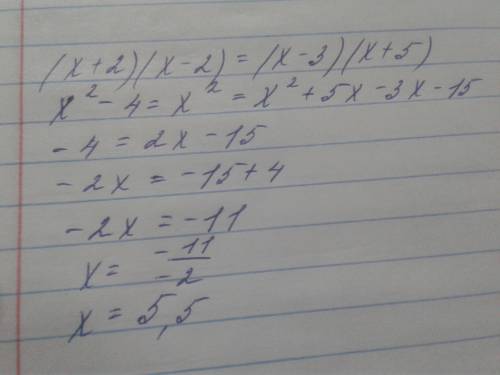 (x+2)(x-2)=(x-3)(x+5)
x²-4=x²=x²+5x-3x-15
-4=2x-15
-2x=-15+4
-2x=-11
x=-11/-2
x=5,5